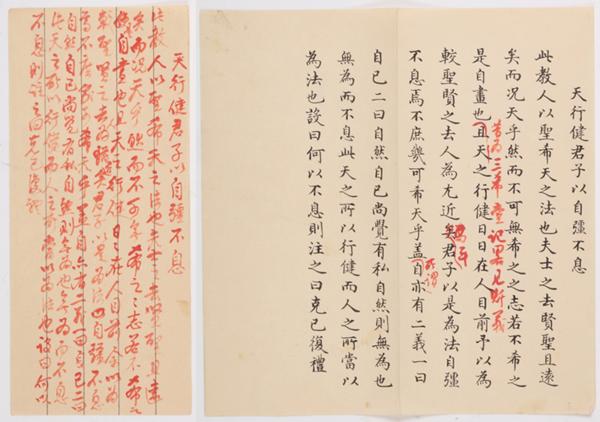 天行健君子以自彊不息
此教人以聖希天之法也夫士之去賢聖且遠
矣而况天乎然而不可無希之之志若不希之
是自畫也且天之行健日日在人目前予以為
昔為三希堂記畧見斯義
較聖賢之去人為尤近矣君子以是為法自彊
不息焉不庶幾可希天乎蓋自亦有二義一曰
所謂
自己二曰自然自己尚覺有私自然則無為也
無為而不息此天之所以行健而人之所當以
為法也設曰何以不息則注之曰克己復禮
天行健君子以自彊不息
此教人以聖希天之法也夫士之去賢聖且遠
矣而况天乎然而不可無希之之志若不希之
是自畫也且天之行健日日在人目前余以為
較聖賢之去為君子以是為法自彊不息
焉不庶幾可希天乎自亦有二義一曰自己二曰
自然自己尚覺有私自然則無為也無為而不息
此天之所以行健而人之所當以為法也設曰何以
不息則注之曰克己復禮